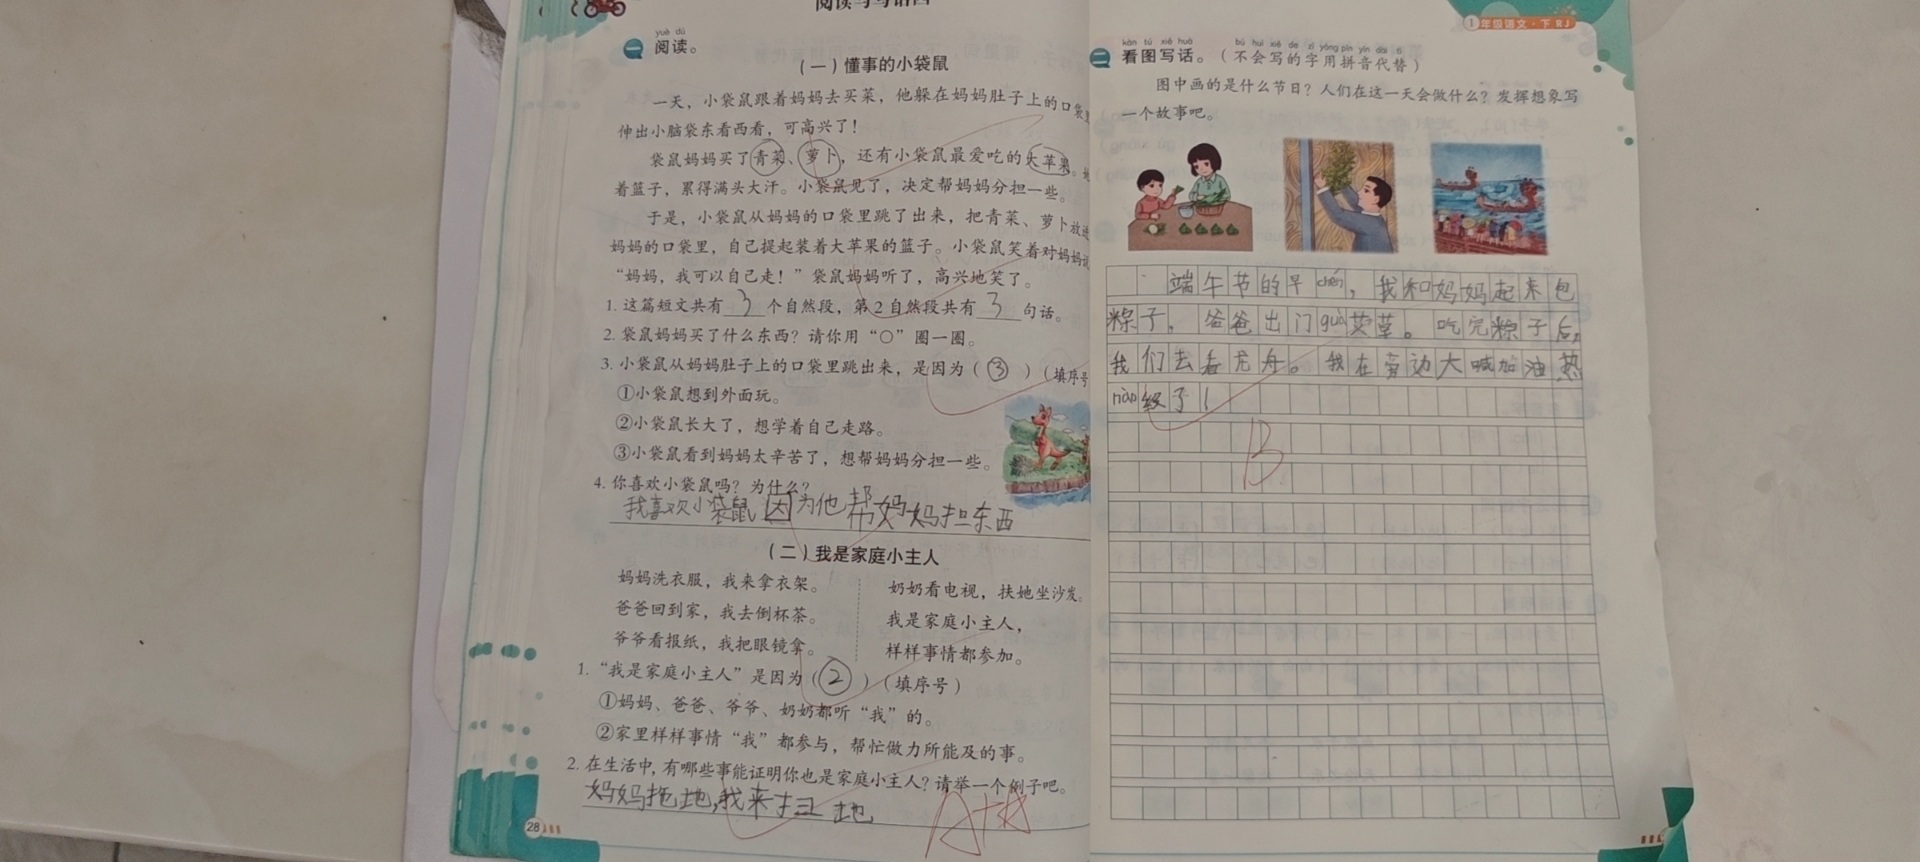 阅读与写话四
yuè dú
一 阅读。
（一）懂事的小袋鼠
一天，小袋鼠跟着妈妈去买菜，他躲在妈妈肚子上的口袋里
伸出小脑袋东看西看，可高兴了！
袋鼠妈妈买了青菜、萝卜，还有小袋鼠最爱吃的大苹果。
着篮子，累得满头大汗。小袋鼠见了，决定帮妈妈分担一些。
于是，小袋鼠从妈妈的口袋里跳了出来，把青菜、萝卜放进
妈妈的口袋里，自己提起装着大苹果的篮子。小袋鼠笑着对妈妈说
“妈妈，我可以自己走！”袋鼠妈妈听了，高兴地笑了。
1. 这篇短文共有 3 个自然段，第2自然段共有 3 句话。
2. 袋鼠妈妈买了什么东西？请你用“○”圈一圈。
3. 小袋鼠从妈妈肚子上的口袋里跳出来，是因为（③）（填序号
①小袋鼠想到外面玩。
②小袋鼠长大了，想学着自己走路。
③小袋鼠看到妈妈太辛苦了，想帮妈妈分担一些。
4. 你喜欢小袋鼠吗？为什么？
我喜欢小袋鼠因为他帮妈妈担东西
（二）我是家庭小主人
妈妈洗衣服，我来拿衣架。
爸爸回到家，我去倒杯茶。
爷爷看报纸，我把眼镜拿。
奶奶看电视，扶她坐沙发。
我是家庭小主人，
样样事情都参加。
1. “我是家庭小主人”是因为（②）（填序号）
①妈妈、爸爸、爷爷、奶奶都听“我”的。
②家里样样事情“我”都参与，帮忙做力所能及的事。
2. 在生活中，有哪些事能证明你也是家庭小主人？请举一个例子吧。
妈妈拖地，我来扫地
A+
28
1年级语文·下 RJ
kàn tú xiě huà bú huì xiě de zì yòng pīn yīn dài tì
二 看图写话。（不会写的字用拼音代替）
图中画的是什么节日？人们在这一天会做什么？发挥想象写
一个故事吧。
端午节的早chén，我和妈妈起来包
粽子，爸爸出门guà艾草。吃完粽子后，
我们去看龙舟。我在旁边大喊加油热
nào级了！
B